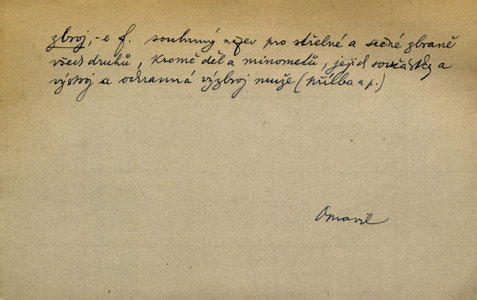 zbroj, -e f. souhrnný název pro střelné a sečné zbraně
všech druhů, kromě děl a minometů, jejich součástky a
výstroj a ochranná výzbroj muže (přilba a p.)